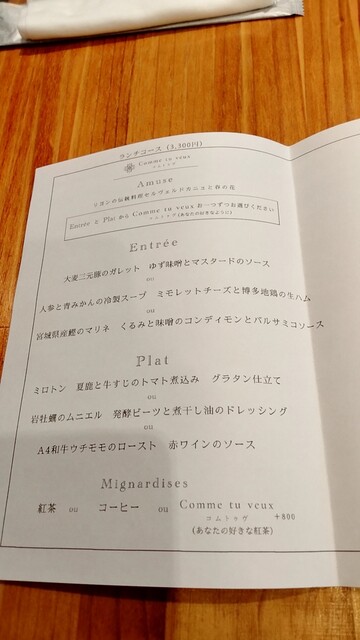 ランチコース (3,300円)
Comme tu veux
コムトゥヴ
Amuse
リヨンの伝統料理セルヴェルドカニュと春の花
Entrée と Plat から Comme tu veux お一つずつお選びください
コムトゥヴ(あなたの好きなように)
Entrée
大麦三元豚のガレット ゆず味噌とマスタードのソース
ou
人参と青みかんの冷製スープ ミモレットチーズと博多地鶏の生ハム
ou
宮城県産鰹のマリネ くるみと味噌のコンディモンとバルサミコソース
Plat
ミロトン 夏鹿と牛すじのトマト煮込み グラタン仕立て
ou
岩牡蠣のムニエル 発酵ビーツと煮干し油のドレッシング
ou
A4和牛ウチモモのロースト 赤ワインのソース
Mignardises
紅茶 ou コーヒー ou Comme tu veux +800
コムトゥヴ
(あなたの好きな紅茶)